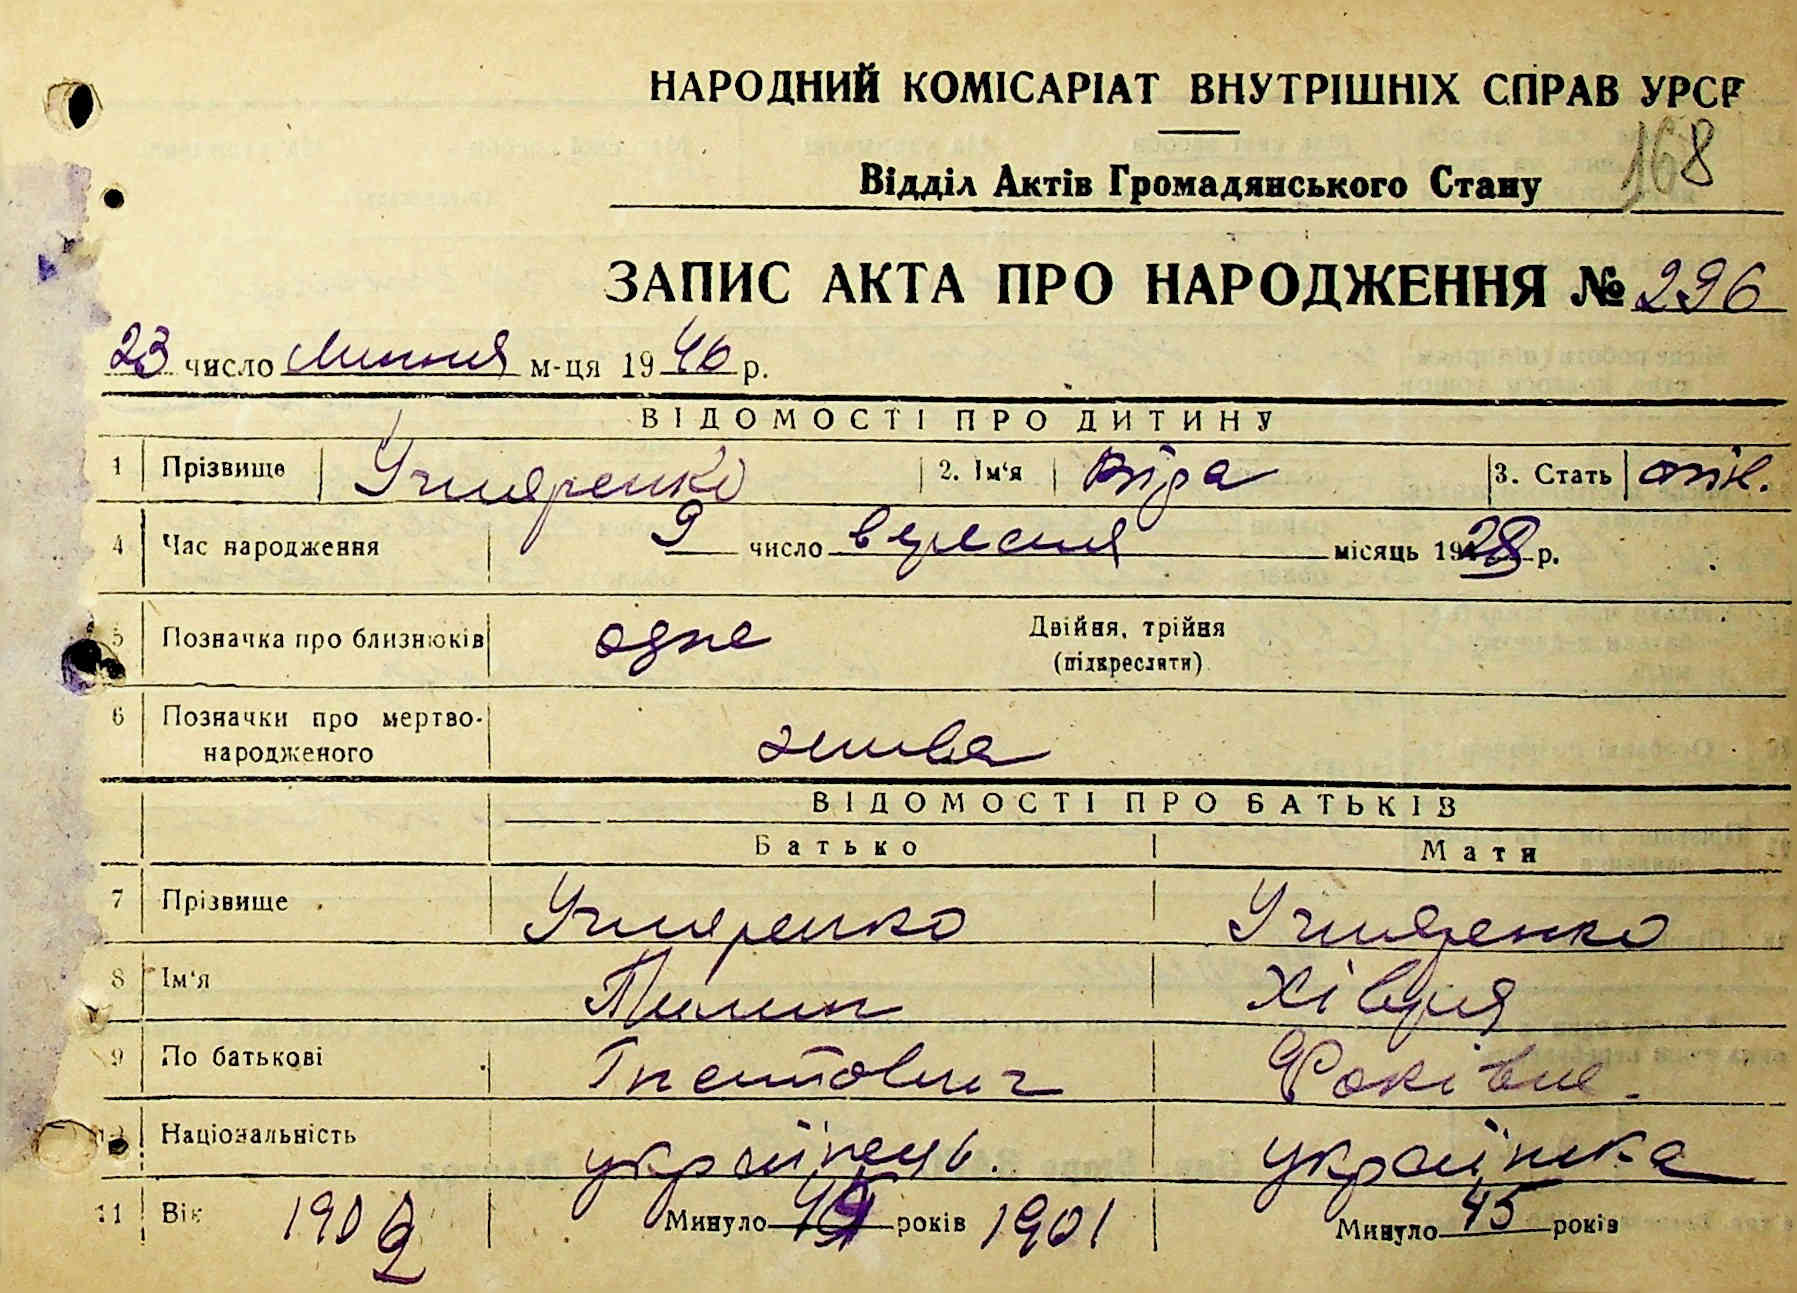 НАРОДНИЙ КОМІСАРІАТ ВНУТРІШНІХ СПРАВ УРСР
168
Відділ Актів Громадянського Стану
ЗАПИС АКТА ПРО НАРОДЖЕННЯ № 296
23 число Липня м-ця 1946 р.
ВІДОМОСТІ ПРО ДИТИНУ
1 Прізвище 2. Ім'я Віра 3. Стать жін.
4 Час народження 9 число вересня місяць 1928 р.
5 Позначка про близнюків одне Двійня, трійня
(підкреслити)
6 Позначки про мертво-
народженого жива
ВІДОМОСТІ ПРО БАТЬКІВ
Батько Мати
7 Прізвище
8 Ім'я Пилип Хівря
9 По батькові Гнатович Фоківна
10 Національність українець. українка
11 Вік 1902 Минуло років 1901 Минуло 45 років